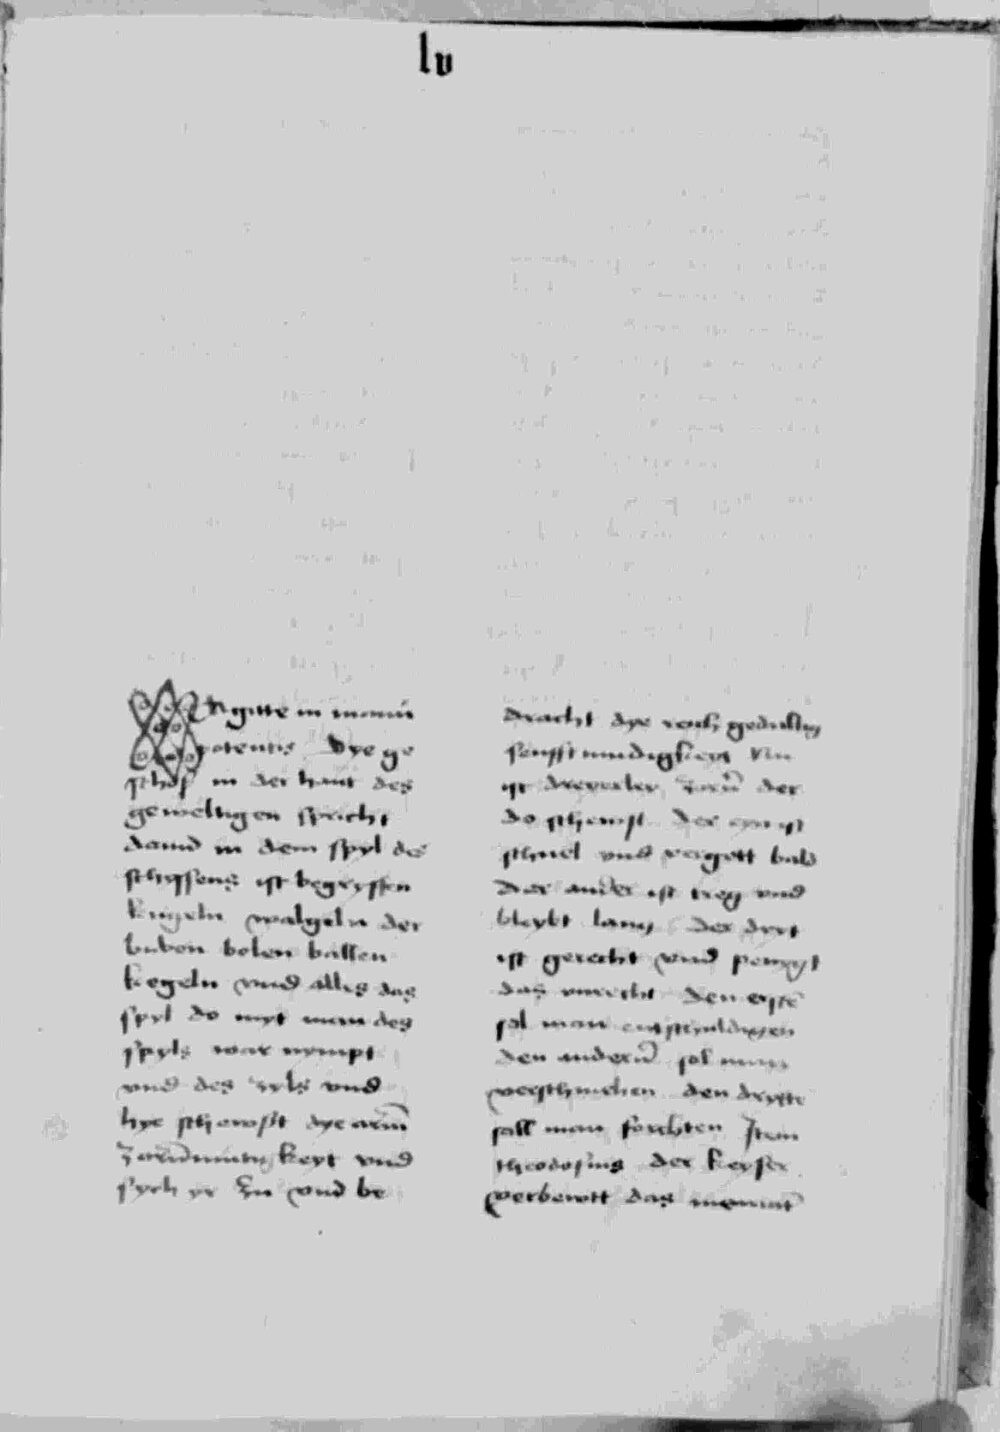 lv
Sagitte in manu
potentis Dye ge
schos in der hant des
geweltigen spricht
dauid in dem spyl des
schyssens ist begryffen
kugeln walgeln der
buben bolen ballen
kegeln vnd alles das
spyl do myt man des
spyls war nympt
vnd des zyls vnd
hye schewsst dye arm
zornmutigkeyt vnd
sych yr zu vnd be
dracht dye gedultig
senfftmudigkeyt
ist dreyerley zorn der
do schewst der eyn ist
schnel vnd vergett bald
der ander ist treg vnd
bleybt lang der dryt
ist gerecht vnd penygt
das vnrecht den erste
sol man entschuldigen
den andern sol man
verschmehen den drytte
sall man forchten Item
theodosius der keyser
verbewtt das nemant